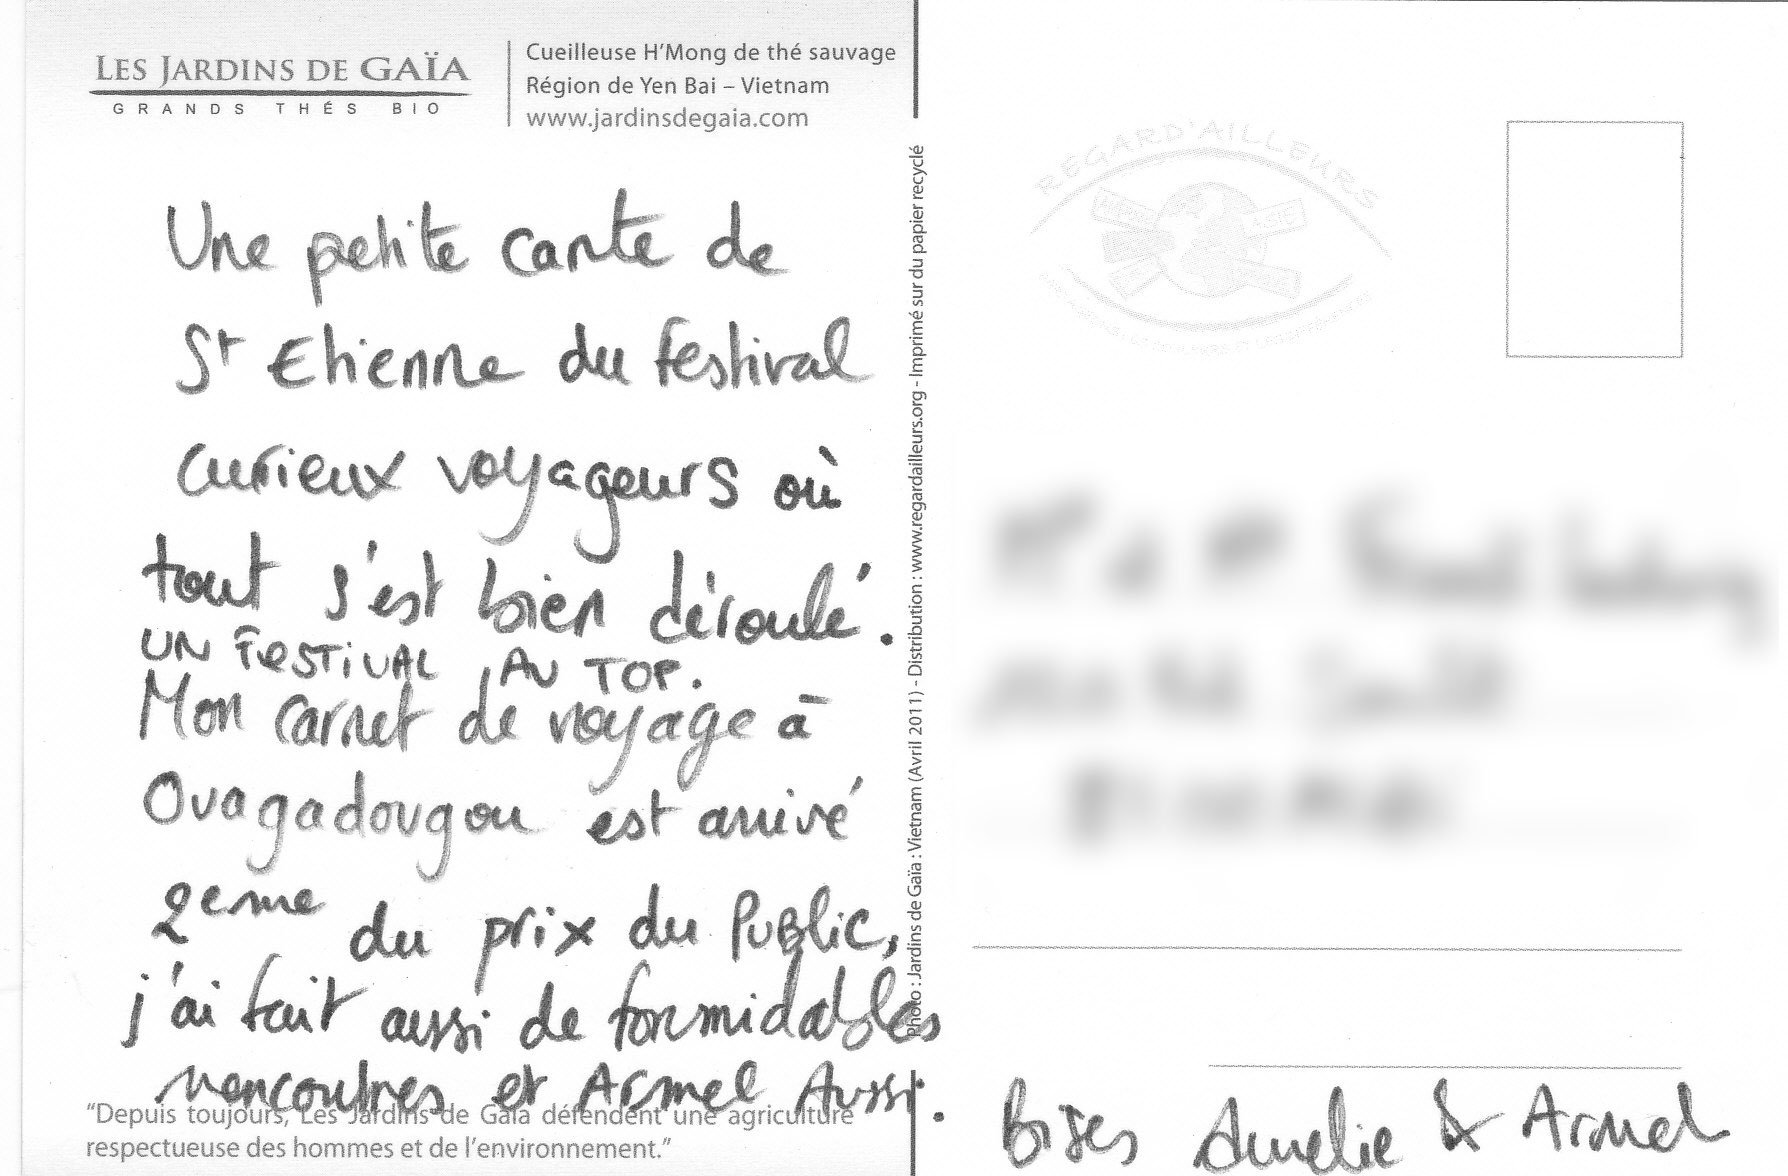 LES JARDINS DE GAÏA
GRANDS THÉS BIO
Cueilleuse H'Mong de thé sauvage
Région de Yen Bai – Vietnam
www.jardinsdegaia.com
Une petite carte de
St Etienne du festival
curieux voyageurs où
tout s'est bien déroulé.
UN FESTIVAL AU TOP.
Mon carnet de voyage à
Ouagadougou est arrivé
2eme du prix du Public,
j'ai fait aussi de formidables
rencontres et Armel Aussi.
"Depuis toujours, Les Jardins de Gaïa défendent une agriculture
respectueuse des hommes et de l'environnement."
Photo : Jardins de Gaïa : Vietnam (Avril 2011) - Distribution : www.regardailleurs.org - Imprimé sur du papier recyclé
REGARD'AILLEURS
Bises Aurelie & Armel